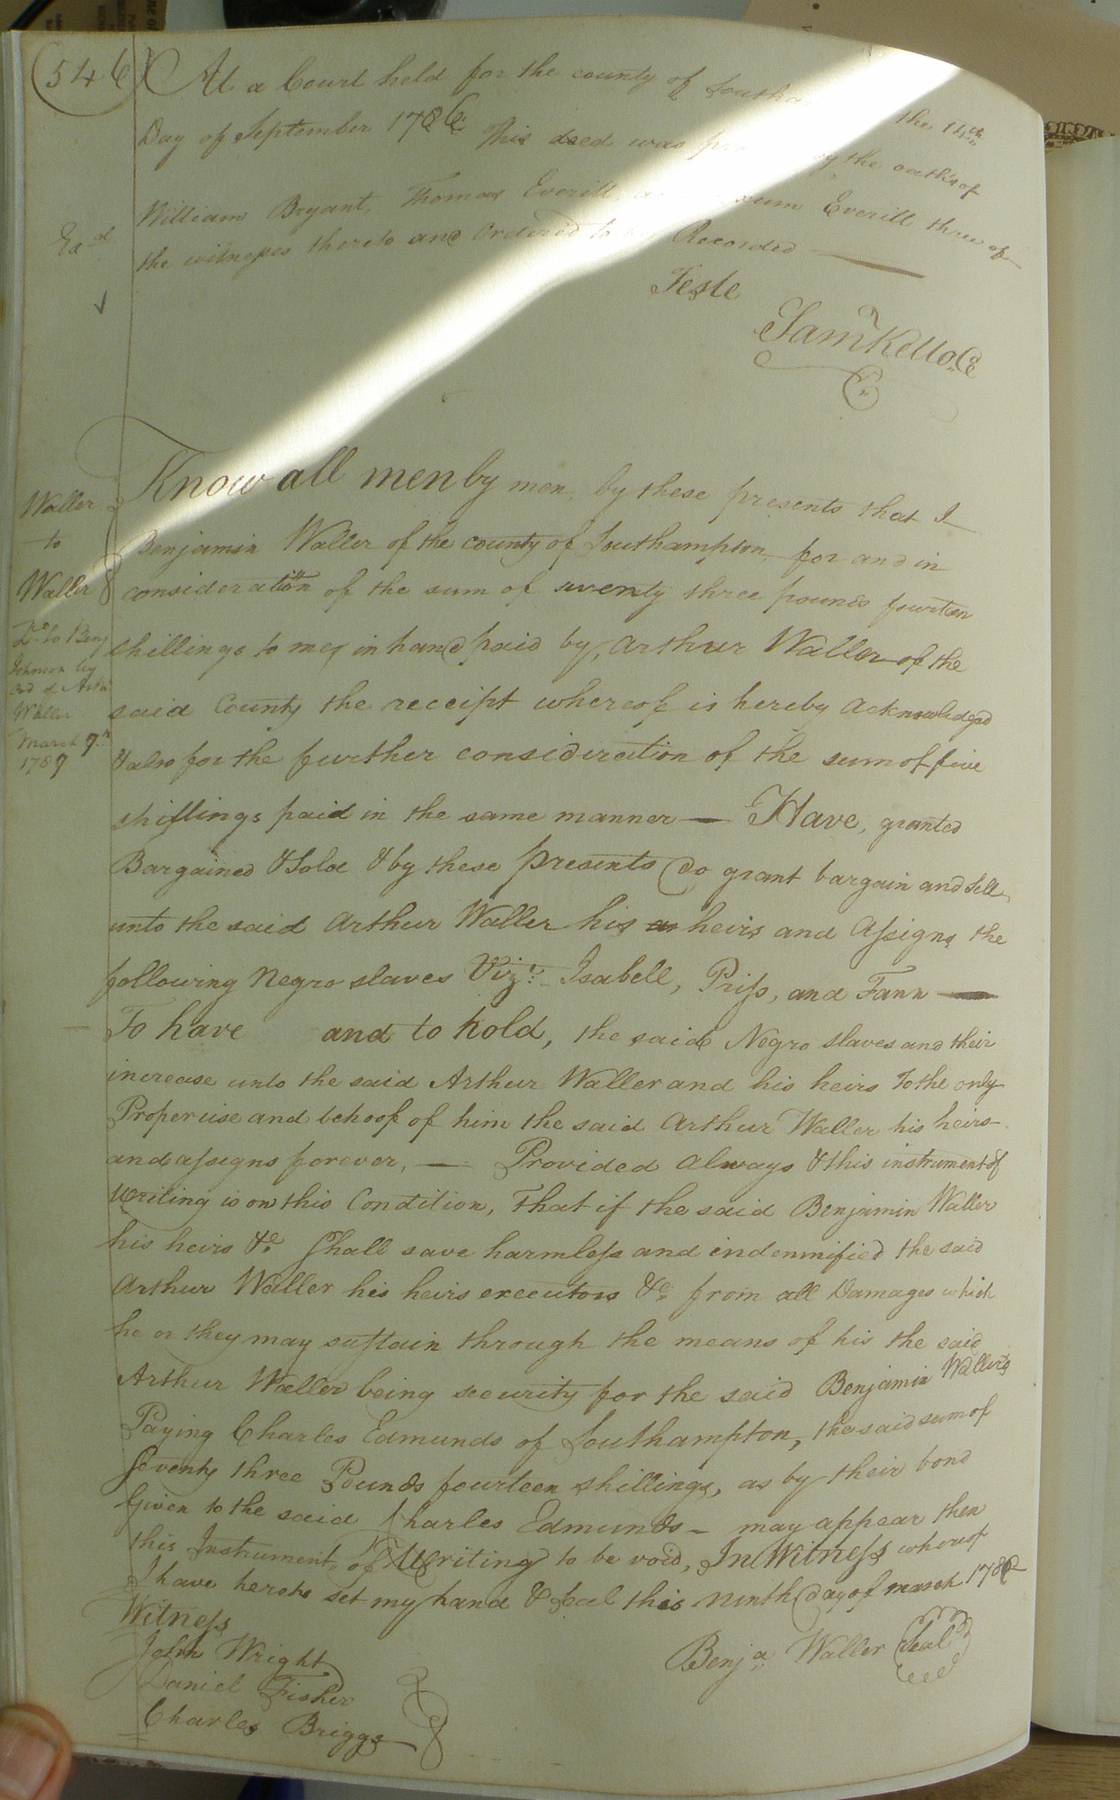 546
At a Court held for the county of Southa the 14th
Day of September 1786 This deed was by the oaths of
William Bryant, Thomas Everill, Everill three of
the witnesses thereto and Ordered to be Recorded
Exd
Teste
Saml Kello CC
Know all men by men, by these presents that I
Waller
to
Waller
Benjamin Waller of the county of Southampton, for and in
consideration of the sum of seventy three pounds fourteen
shillings to me, in hand paid by, Arthur Waller of the
Dd to Benj
Johnson by
Ord of Arthr
Waller
March 9th
1789
said County the receipt whereof is hereby Acknowledged
& also for the further consideration of the sum of five
shillings paid in the same manner — Have, granted
Bargained & Sold & by these presents Do grant bargain and Sell,
unto the said Arthur Waller his heirs and Assigns the
following Negro slaves Vizt. Isabell, Priss, and Fann —
To have and to hold, the said Negro slaves and their
increase unto the said Arthur Waller and his heirs To the only
Proper use and behoof of him the said Arthur Waller his heirs
and assigns forever, — Provided Always & this instrument of
Writing is on this Condition, That if the said Benjamin Waller
his heirs &c. Shall save harmless and indemnified the said
Arthur Waller his heirs executors &c. from all Damages which
he or they may sustain through the means of his the said
Arthur Waller being security for the said Benjamin Waller's
Paying Charles Edmunds of Southampton, the said sum of
Seventy three Pounds fourteen shillings, as by their bond
Given to the said Charles Edmunds — may appear then
this Instrument, of Writing to be void, In Witness whereof
I have hereto set my hand & Seal this Ninth Day of march 178
Witness
John Wright
Daniel Fisher
Charles Briggs
Benja. Waller Seal